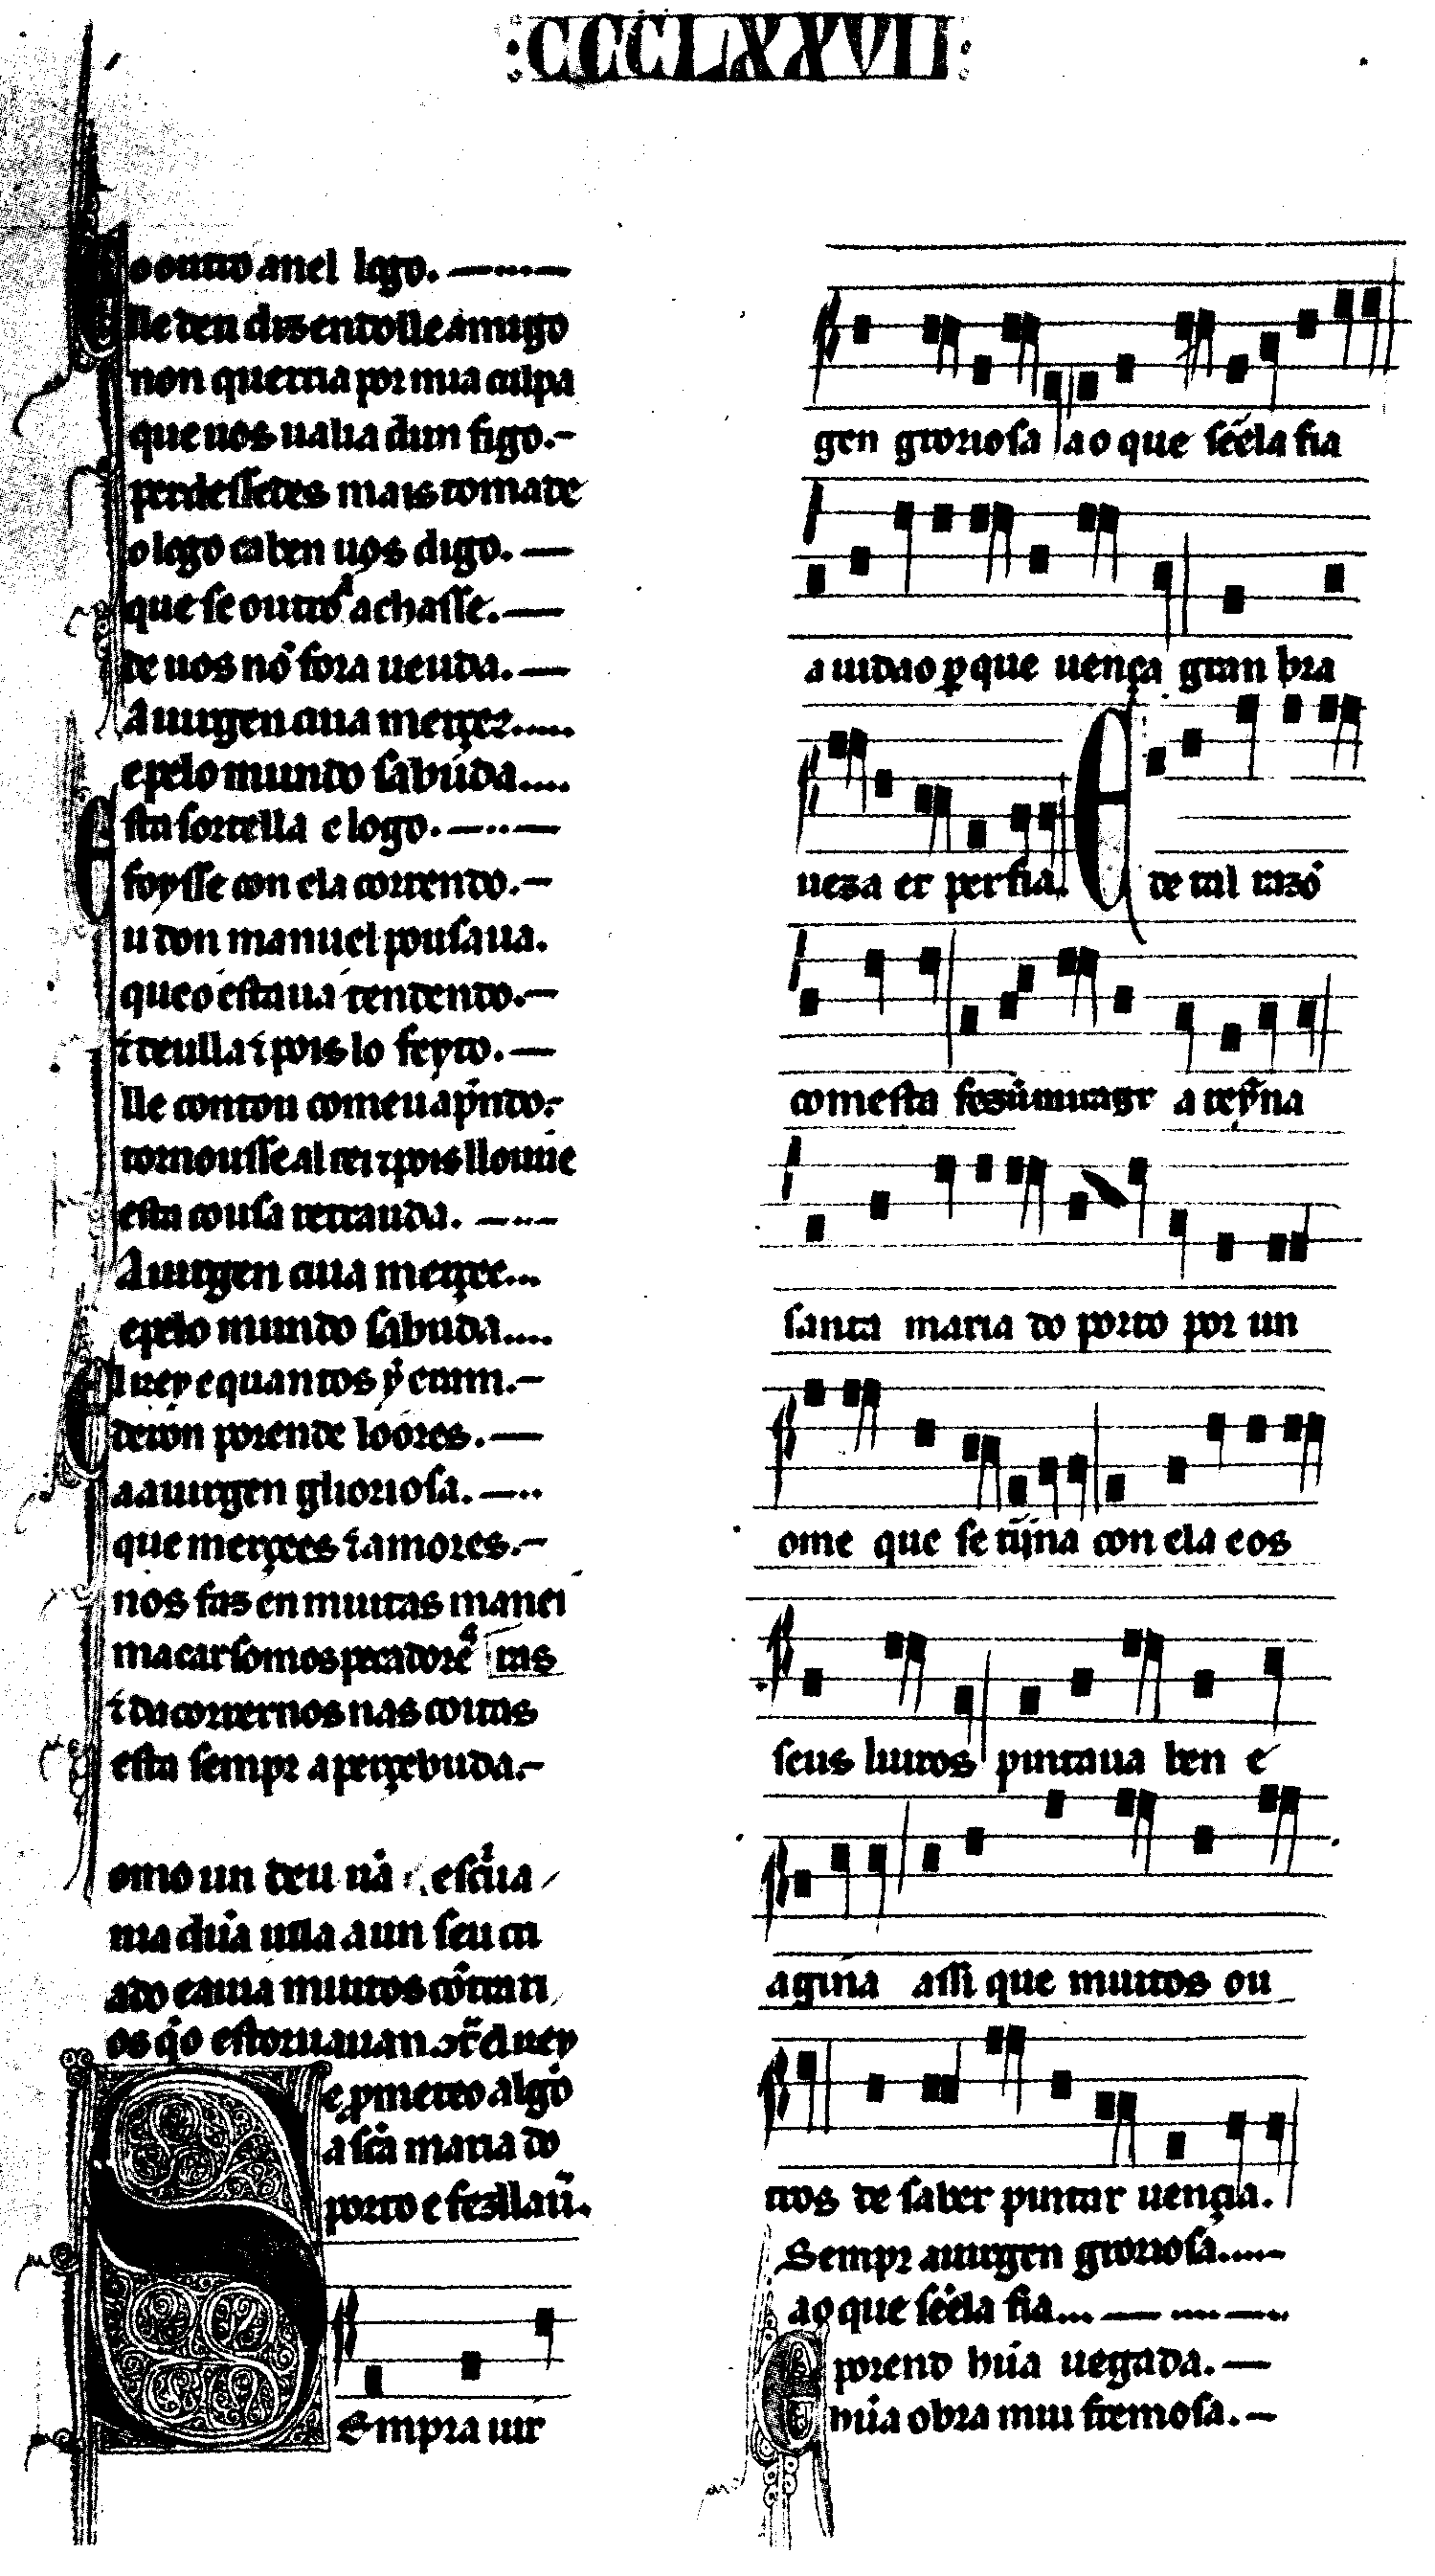 :CCCLXXVII:
o outro anel logo.
lle den diz entolle amigo
non querria por mia culpa
que uos ualia dun figo.
perdessedes mais tomade
o logo ca ben uos digo.
que se outro achasse.
de uos nō fora ueuda.
A uirgen cuia merçez.....
e pelo mundo sabuda....
Esta sortella e logo.
foysse con ela correndo.
u don manuel pousaua.
que o estaua tendendo.
ι deulla ι pois lo feyto.
lle contou comeu aprēdo.
tornousse al rei ι pois lloune
esta cousa retrauda.
A uirgen cuia merçee...
e pelo mundo sabuda....
El rey e quantos y eram.
deron porende loores.
a a uirgen gloriosa.
que merçees ι amores.
nos faz en muitas manei
macar somos pecadore ras
ι dacorrernos nas coitas
esta sempr aperçebuda.
omo un deu ūa escriua
nia dūa uila a un seu cri
ado e auia muitos cōtrari
os q̇ o estoruauan. ι el rey
e pmeteo algo
a sca maria do
porto e fezlla auer.
Sempra uir
gen groriosa ao que sseela fia
aiudao p̱ que uença gran bra
ueza er perfia. E de tal razō
comesta fez ū miragr a reyna
santa maria do porto por un
ome que se tijna con ela e os
seus liuros pintaua ben e
agin̄a assi que muitos ou
tros de saber pintar uencia.
Sempr a uirgen groriosa.....
ao que sseela fia...
E porend hūa uegada.
hūa obra mui fremosa.